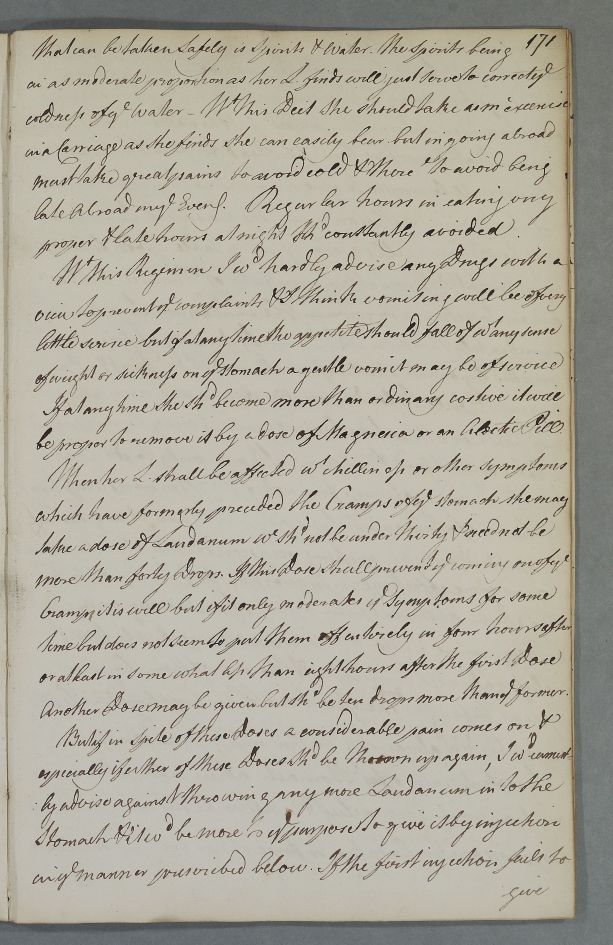 171
that can be taken safely is Spirits & Water. The Spirits being
in as moderate proportion as her L. finds will just serve to correct yᵉ
coldness of yᵉ Water – Wᵗ this Diet She should take as mᶜʰ exercise
in a Carriage as she finds she can easily bear but in going abroad
must take great pains to avoid cold & there to avoid being
late Abroad in yᵉ Eveng. Regular hours in eating very
proper & late hours at night shᵈ constantly avoided.
Wᵗ this Regimen I wᵈ hardly advise any Drugs with a
view to prevent yᵉ complaints & I think vomiting will be of very
little service but if at any time the appetite should fall of wᵗ any sense
of weight or sickness on yᵉ stomach a gentle vomit may be of service
If at any time she shᵈ become more than ordinary costive it will
be proper to remove it by a dose of Magnesia or an Aloetic Pill
When her L. shall be affected wᵗ chilliness or other symptoms
which have formerly preceded the Cramps of yᵉ stomach she may
take a dose of Laudanum wᶜ shᵈ not be under thirty & need not be
more than forty Drops. If this Dose shall prevent yᵉ coming on of yᵉ
Cramp it is well but if it only moderates yᵉ Symptoms for some
time but does not seem to put them off entirely in four hours after
or at least in some what less than eight hours after the first Dose
Another Dose may be given but shᵈ be ten drops more than yᵉ former.
But if in spite of these Doses a considerable pain comes on &
especially if either of these Doses shᵈ be thrown up again, I wᵈ earnest-
ly advise against throwing any more Laudanum in to the
Stomach & it wᵈ be more to yᵉ purpose to give it by injection
in yᵉ manner prescribed below. If the first injection fails to
give